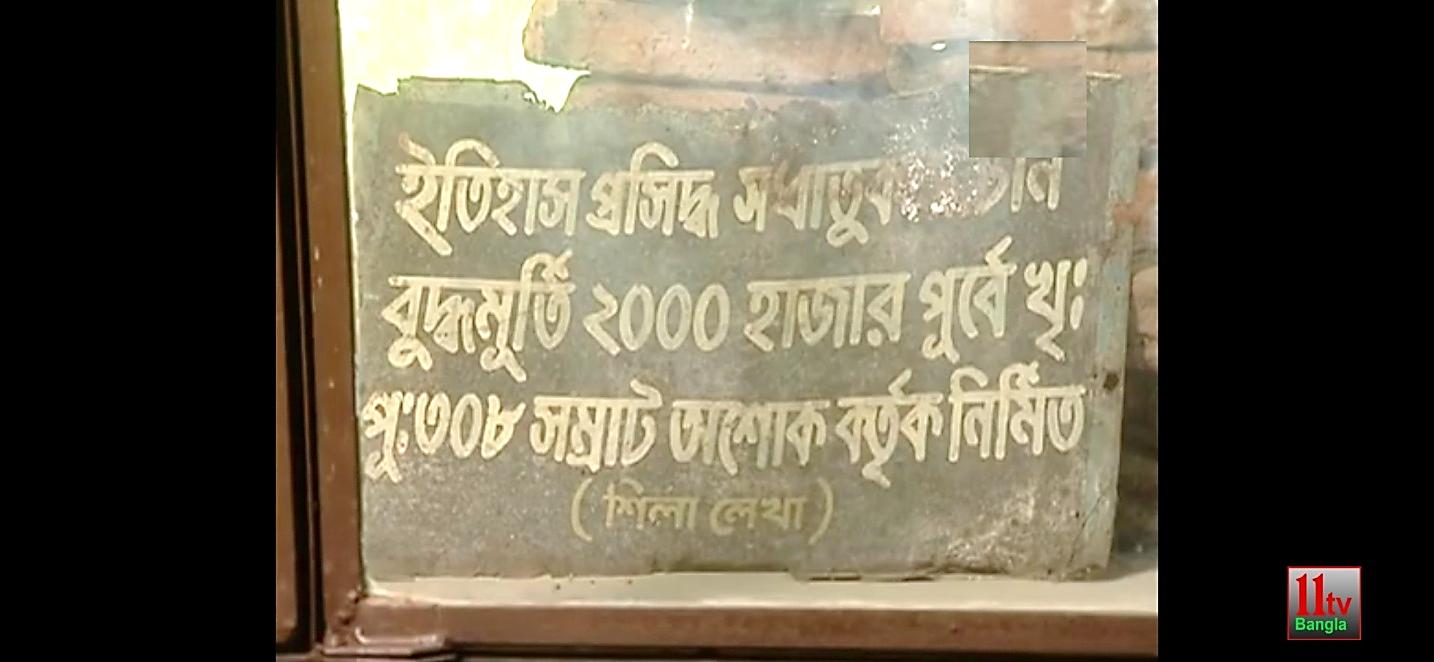 ইতিহাস প্রসিদ্ধ
বুদ্ধমূর্তি ২০০০ হাজার পূর্বে খৃঃ
পূ:৩০৮ সম্রাট অশোক কর্তৃক নির্মিত
(শিলা লেখা)
11tv
Bangla